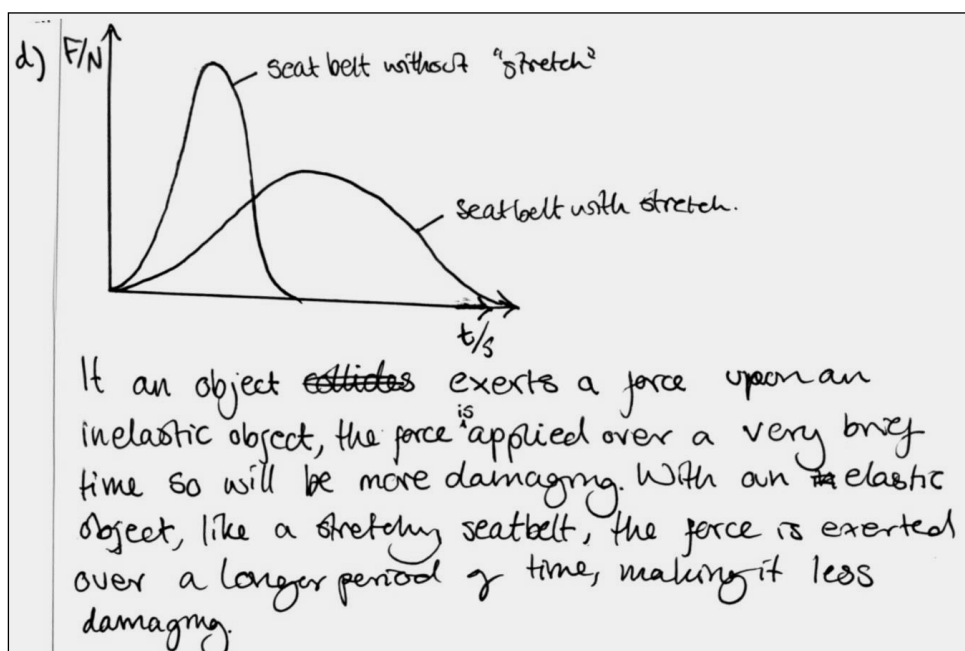 d) F/N
seat belt without "stretch"
seatbelt with stretch.
t/s
If an object collides exerts a force upon an
inelastic object, the force is applied over a very brief
time so will be more damaging. With an elastic
object, like a stretchy seatbelt, the force is exerted
over a longer period of time, making it less
damaging.